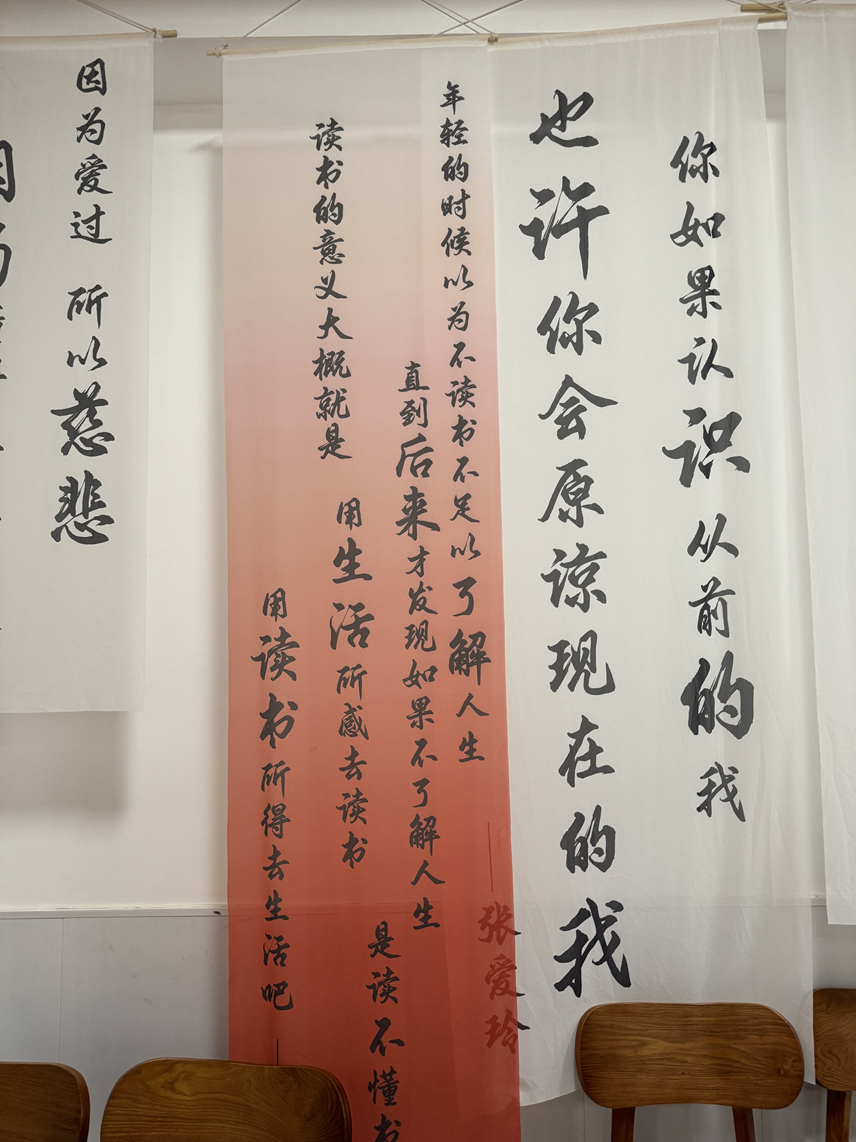 你如果认识从前的我
也许你会原谅现在的我
张爱玲
年轻的时候以为不读书不足以了解人生
直到后来才发现如果不了解人生
是读不懂书
读书的意义大概就是
用生活所感去读书
用读书所得去生活吧
因为爱过 所以慈悲